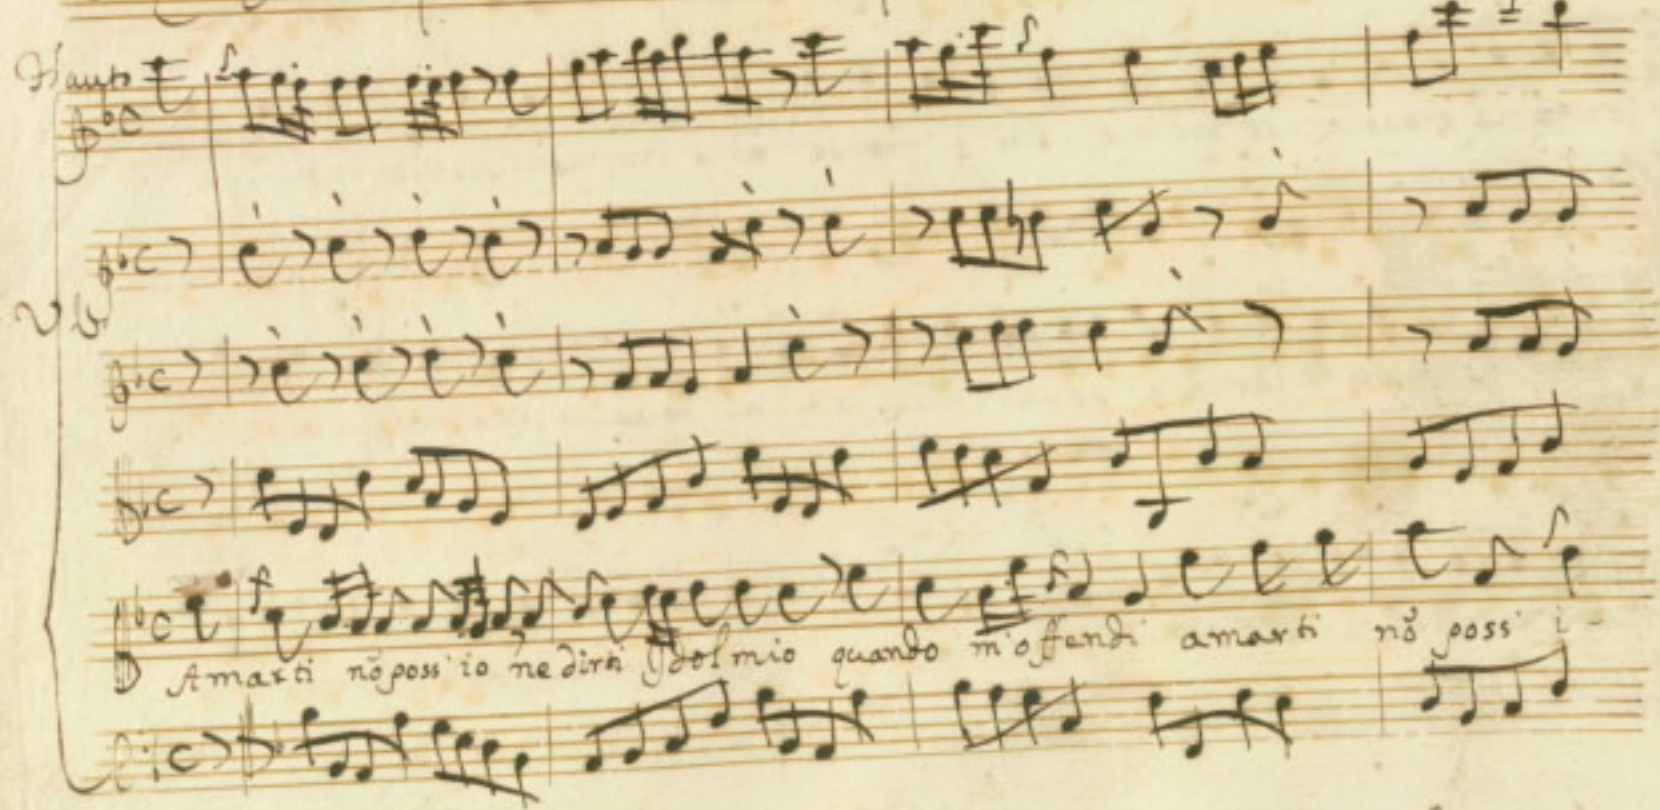 Flauti
VV
Amarti nō poss' io ne dirti Ydol mio quando m'offendi amarti nō poss' i-